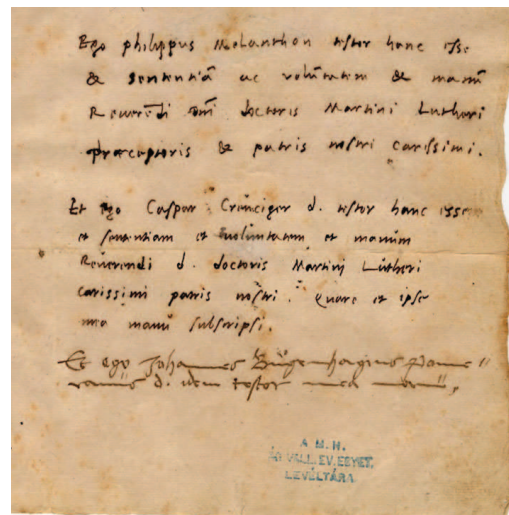 Ego philippus Melanthon testor hanc esse
& sententiã ac volũtatem & manũ
Reverẽdi dñi doctoris Martini Lutheri
præceptoris & patris nostri carissimi.
Et ego Caspar Creuciger d. testor hanc esse
et sententiam et voluntatem et manum
Reverendi d. doctoris Martinj Lutheri
carissimi patris nostri. Quare et ipse
mea manu subscripsi.
Et ego Johannes Bugenhagius Pome
ranus d. idem testor mea manu.
A M. H.
VALL. EV. EGYET.
LEVÉLTÁRA